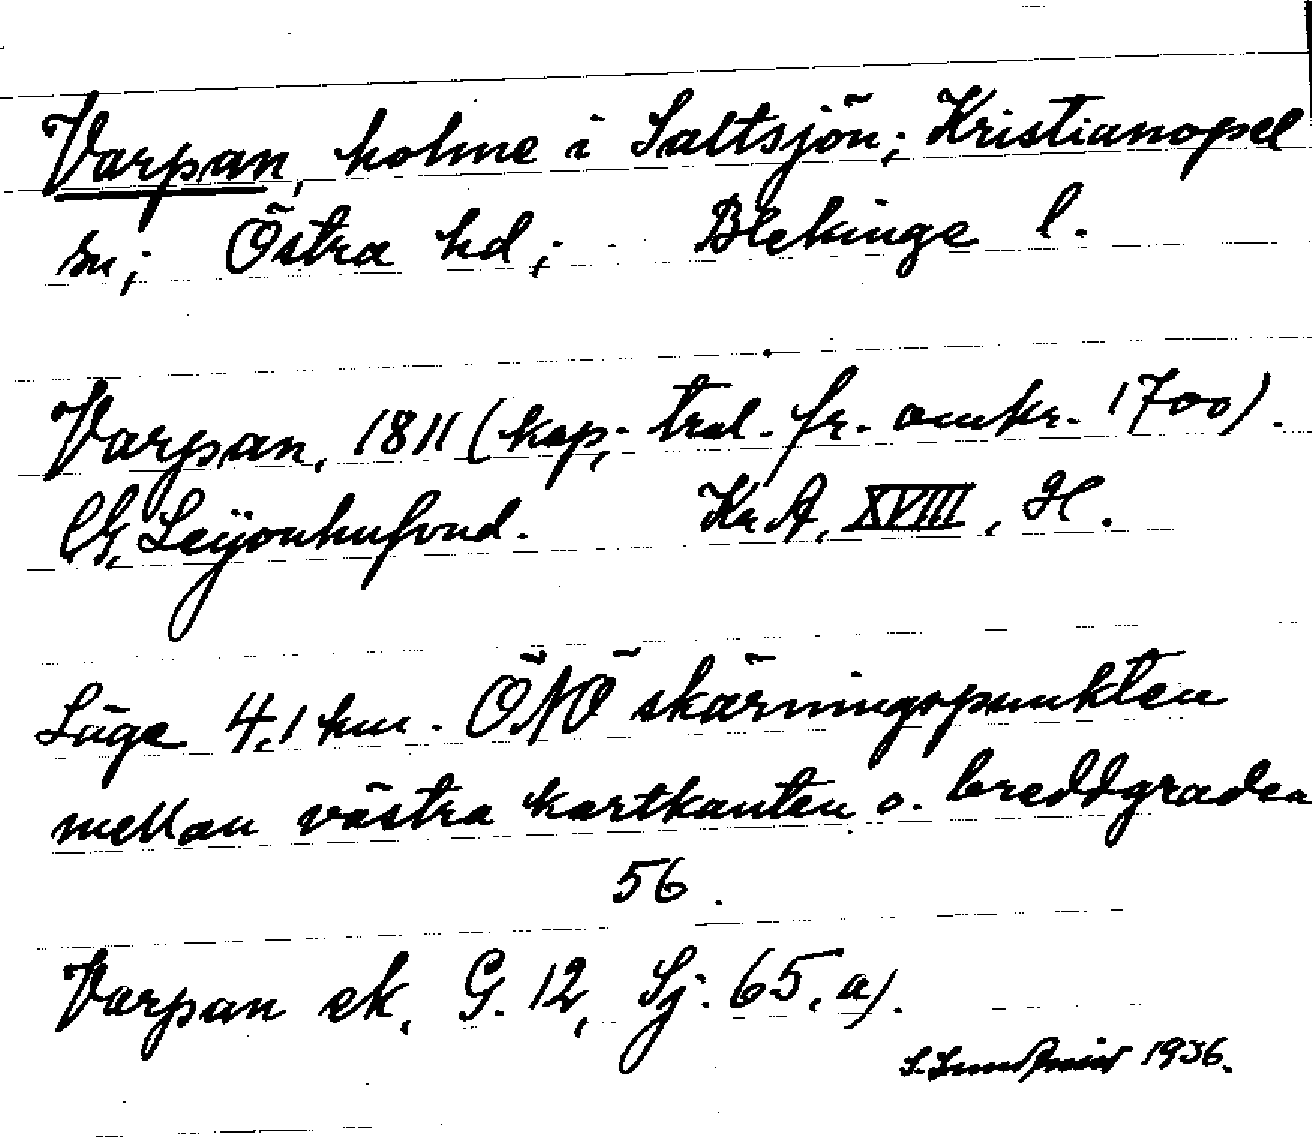 Varpan, holme i Saltsjön; Kristianopel
sn; Östra hd; Blekinge l.
Varpan, 1811 (kop. trol. fr. omkr. 1700).
CG, Leijonhufvud. Kr A, XVIII, H.
Läge 4,1 km. ÖNÖ skärningspunkten
mellan västra kartkanten o. breddgraden
56.
Varpan ek. G. 12, Sj. 65. a).
1936.